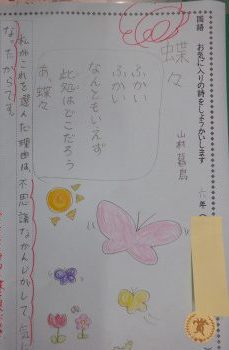 国語　お気に入りの詩をしょうかいします
六年
蝶々
山村暮鳥
ふかい
ふかい
なんともいえず
此処はどこだろう
あ、蝶々
私がこれを選んだ理由は、不思議なかんじがして、気に
なったからです。